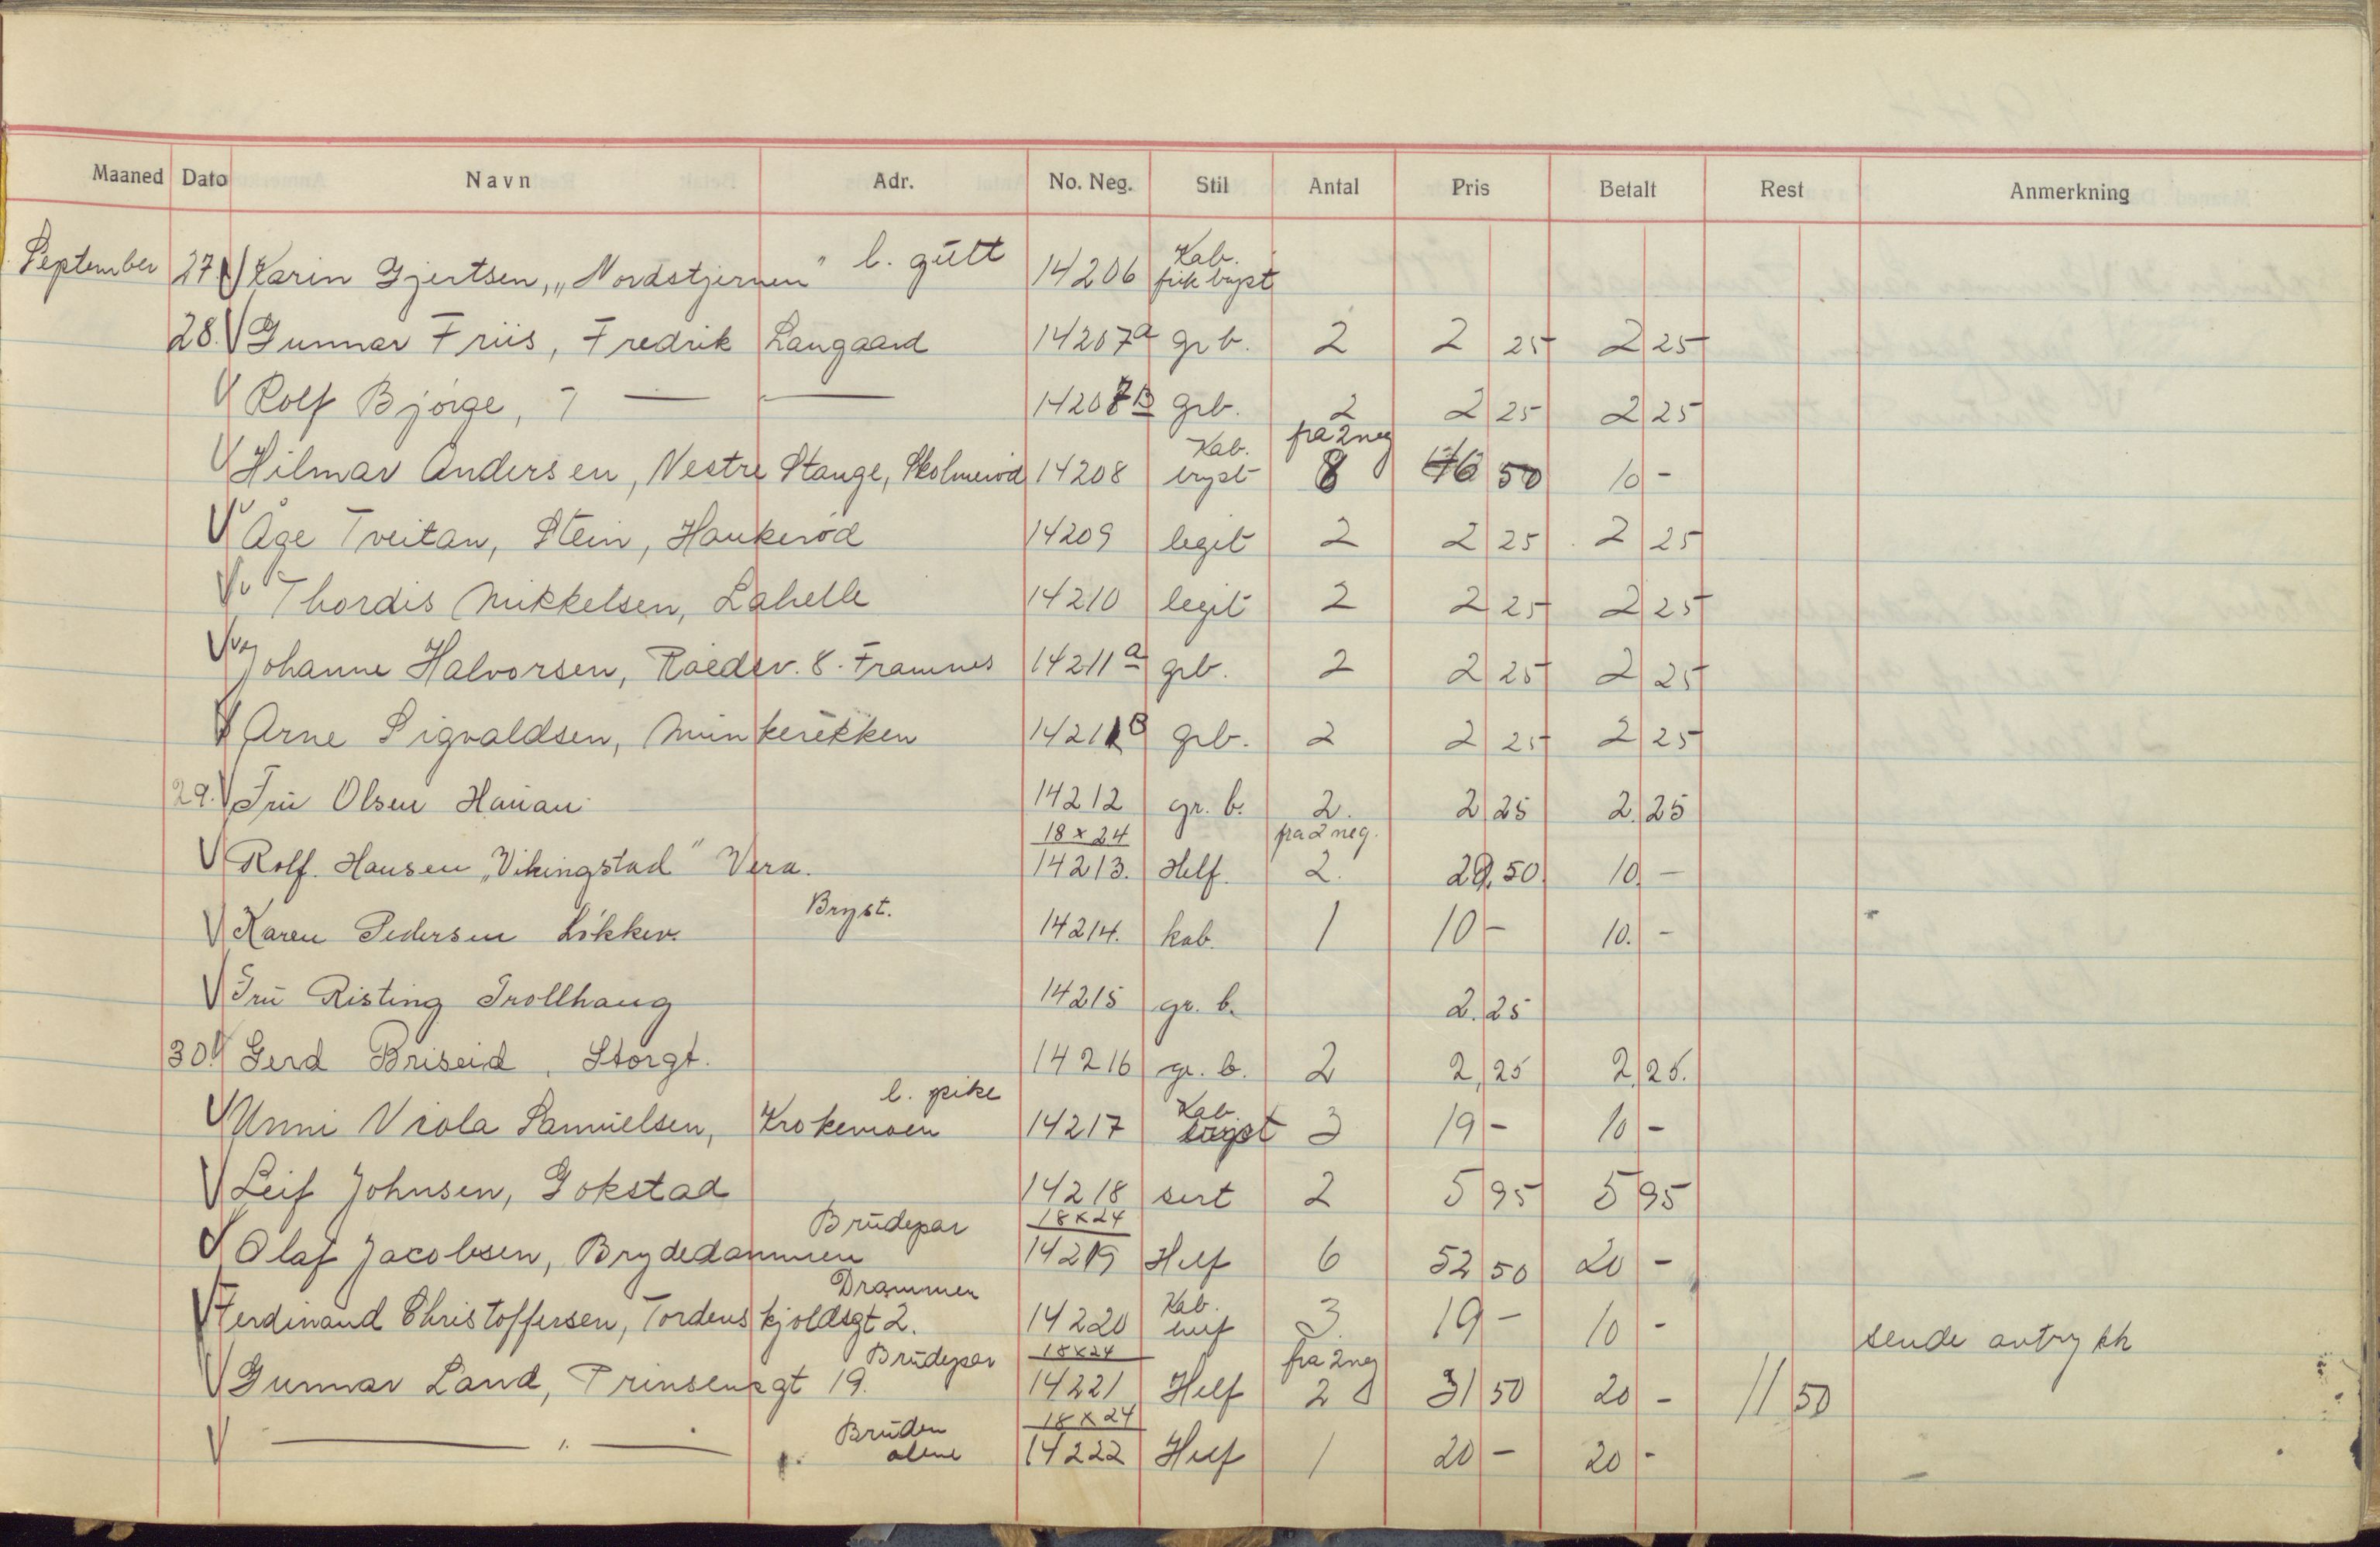 Maaned Dato Navn Adr. No. Neg. Stil Antal Pris Betalt Rest Anmerkning
September 27. Karin Gjertsen, „Nordstjernen" l. gutt 14206 Kab. bryst
28. Gunnar Friis, Fredrik Langaard 14207a grb. 2 2 25 2 25
Rolf Bjørge, — — 14207B grb. 2 2 25 2 25
Hilmar Andersen, Vestre Stange, 14208 Kab. bryst fra 2 neg 8 50 10 -
Åge Tveitan, Stein, Haukerød 14209 legit 2 2 25 2 25
Thordis Mikkelsen, Lahelle 14210 legit 2 2 25 2 25
Johanne Halvorsen, Raedsv. 8. Framnes 14211a grb. 2 2 25 2 25
Arne Sigvaldsen, Munkerekken 14211B grb. 2 2 25 2 25
29. Fru Olsen Hauan 14212 gr. b. 2. 2 25 2.25
Rolf. Hansen „Vikingstad" Vera. 18 x 24 14213. Helf. fra 2 neg. 2. 50 10. -
Karen Pedersen Løkkev. Bryst. 14214. kab. 1 10 - 10. -
Fru Risting Trollhaug 14215 gr. b. 2.25
30. Gerd Briseid, Storgt. 14216 gr. b. 2 2,25 2,25.
Unni Viola Samuelsen, Krokemoen l. pike 14217 Kab. bryst 3 19 - 10 -
Leif Johnsen, Gokstad 14218 sert 2 5 95 5 95
Olaf Jacobsen, Brydedammen Brudepar 18 x 24 14219 Helf 6 52 50 20 -
Ferdinand Christoffersen, Tordenskjoldsgt 2. Drammen 14220 Kab. 3. 19 - 10 - sende avtrykk
Gunnar Land, Prinsensgt 19. Brudepar 18x24 14221 Helf fra 2 neg 2 31 50 20 - 11 50
— „ — Bruden alene 18 x 24 14222 Helf 1 20 - 20 -